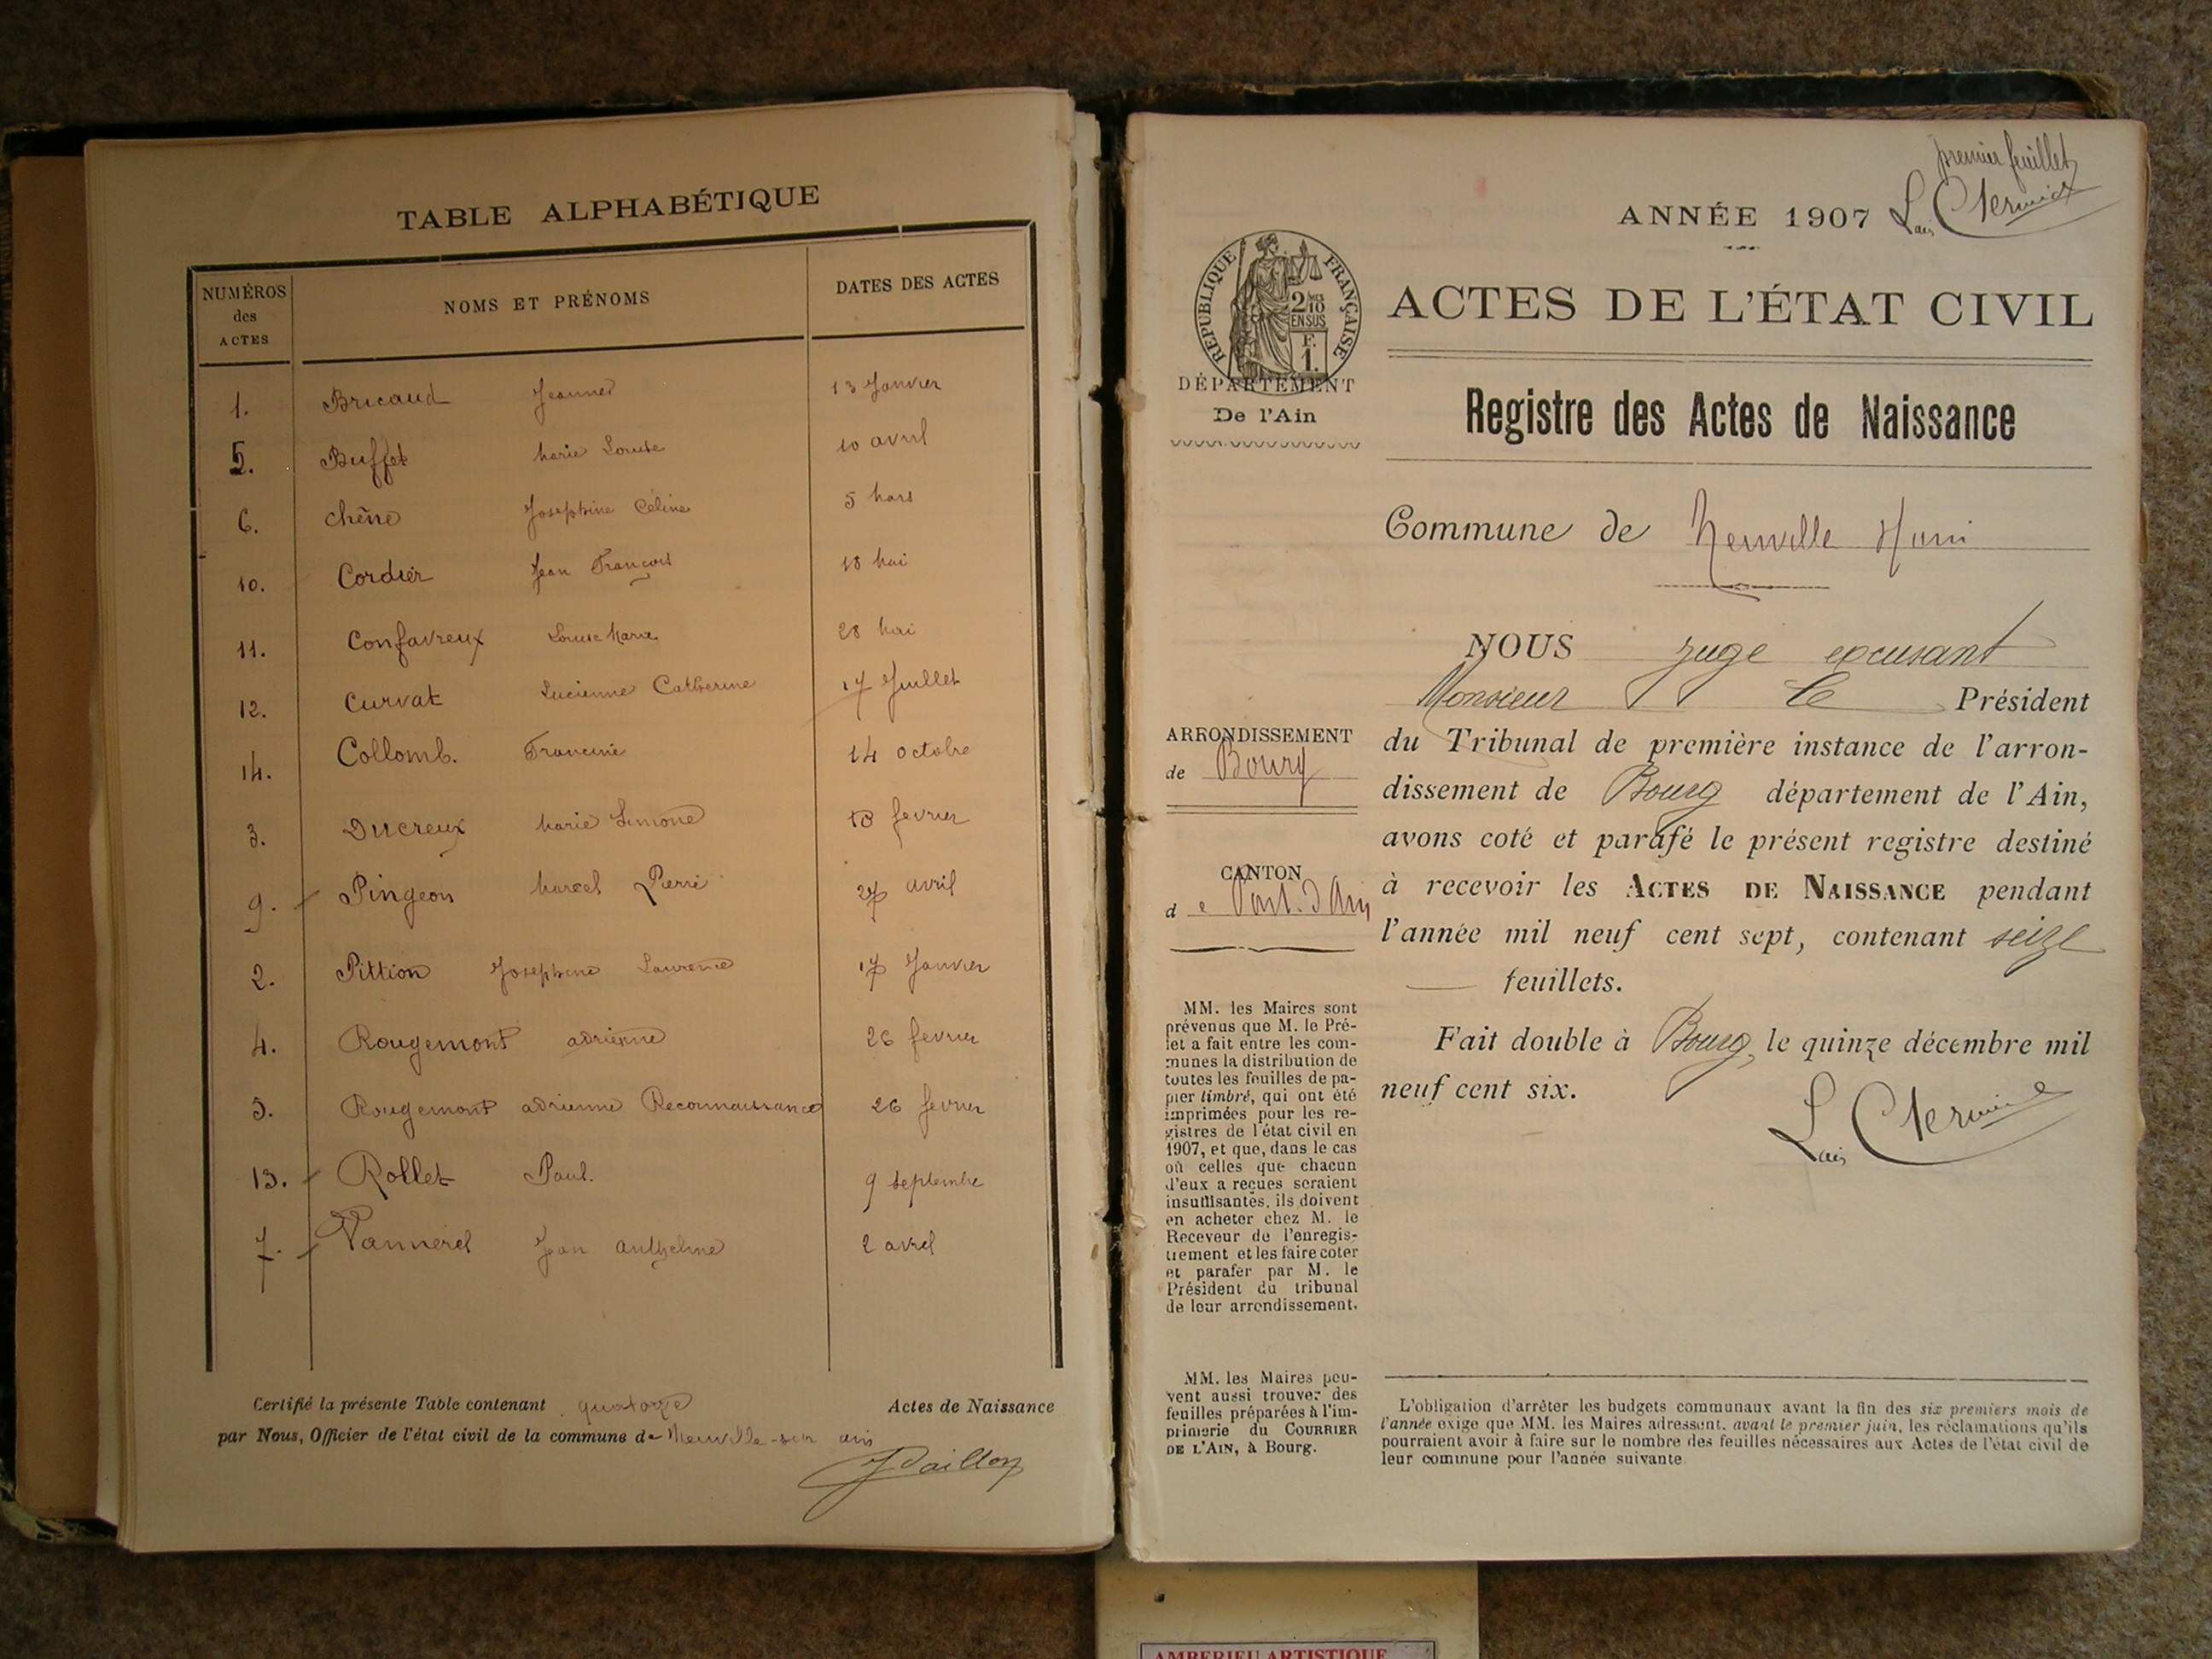 TABLE ALPHABÉTIQUE
NUMÉROS des ACTES
NOMS ET PRÉNOMS
DATES DES ACTES
1. Bricaud Jeanne 13 Janvier
5. Buffet Marie Louise 10 avril
6. Chêne Josephine Céline 5 Mars
10. Cordier Jean François 18 Mai
11. Confavreux Louise Marie 28 Mai
12. Curvat Lucienne Catherine 17 Juillet
14. Collomb. Francine 14 octobre
3. Ducreux Marie Simone 18 fevrier
9. Pingeon Marcel Pierre 27 avril
2. Pittion Josephine Laurence 17 Janvier
4. Rougemont adrienne 26 fevrier
5. Rougemont adrienne Reconnaissance 26 fevrier
13. Rollet Paul. 9 septembre
7. Vannerel Jean anthelme 2 avril
Certifié la présente Table contenant quatorze Actes de Naissance
par Nous, Officier de l'état civil de la commune de Neuville-sur ain
premier feuillet
ANNÉE 1907
RÉPUBLIQUE FRANÇAISE
2/10
EN SUS
F.
1.
ACTES DE L'ÉTAT CIVIL
DÉPARTEMENT
De l'Ain
Registre des Actes de Naissance
Commune de Neuville s/ain
NOUS juge excusant
Monsieur Le Président
du Tribunal de première instance de l'arron-
dissement de Bourg département de l'Ain,
avons coté et parafé le présent registre destiné
à recevoir les ACTES DE NAISSANCE pendant
l'année mil neuf cent sept, contenant seize
feuillets.
Fait double à Bourg, le quinze décembre mil
neuf cent six.
ARRONDISSEMENT
de Bourg
CANTON
d e Pont-d'Ain
MM. les Maires sont
prévenus que M. le Pré-
fet a fait entre les com-
munes la distribution de
toutes les feuilles de pa-
pier timbré, qui ont été
imprimées pour les re-
gistres de l'état civil en
1907, et que, dans le cas
où celles que chacun
d'eux a reçues seraient
insuffisantes, ils doivent
en acheter chez M. le
Receveur de l'enregis-
trement et les faire coter
et parafer par M. le
Président du tribunal
de leur arrondissement.
MM. les Maires peu-
vent aussi trouver des
feuilles préparées à l'im-
primerie du COURRIER
DE L'AIN, à Bourg.
L'obligation d'arrêter les budgets communaux avant la fin des six premiers mois de
l'année exige que MM. les Maires adressent, avant le premier juin, les réclamations qu'ils
pourraient avoir à faire sur le nombre des feuilles nécessaires aux Actes de l'état civil de
leur commune pour l'année suivante
AMBERIEU ARTISTIQUE